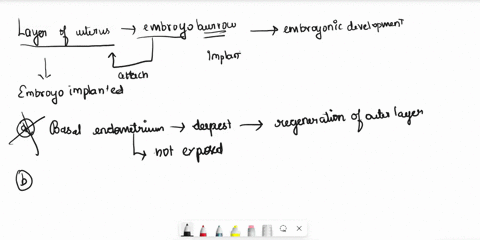 Layer of uterus → embroyo burrow → embroyonic development
Implant
attach
Embroyo implanted
(a) Basal endometrium → deepest → regeneration of outer layer
not exposed
(b)